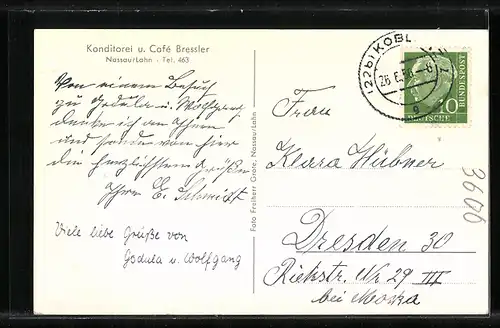 Konditorei u. Café Bressler
Nassau/Lahn · Tel. 463
Von einem Besuch
zu Godula u. Wolfgang
denke ich an Ihnen
und sende von hier
die herzlichsten Grüße
Ihre E. Schmidt
Viele liebe Grüße von
Godula u. Wolfgang
Foto Freiherr Grote, Nassau/Lahn
(22b) KOBL
26.6.56
DEUTSCHE
BUNDESPOST
10
Frau
Klara Hübner
Dresden 30
Riekstr. Nr. 29 III
bei Moska
3606